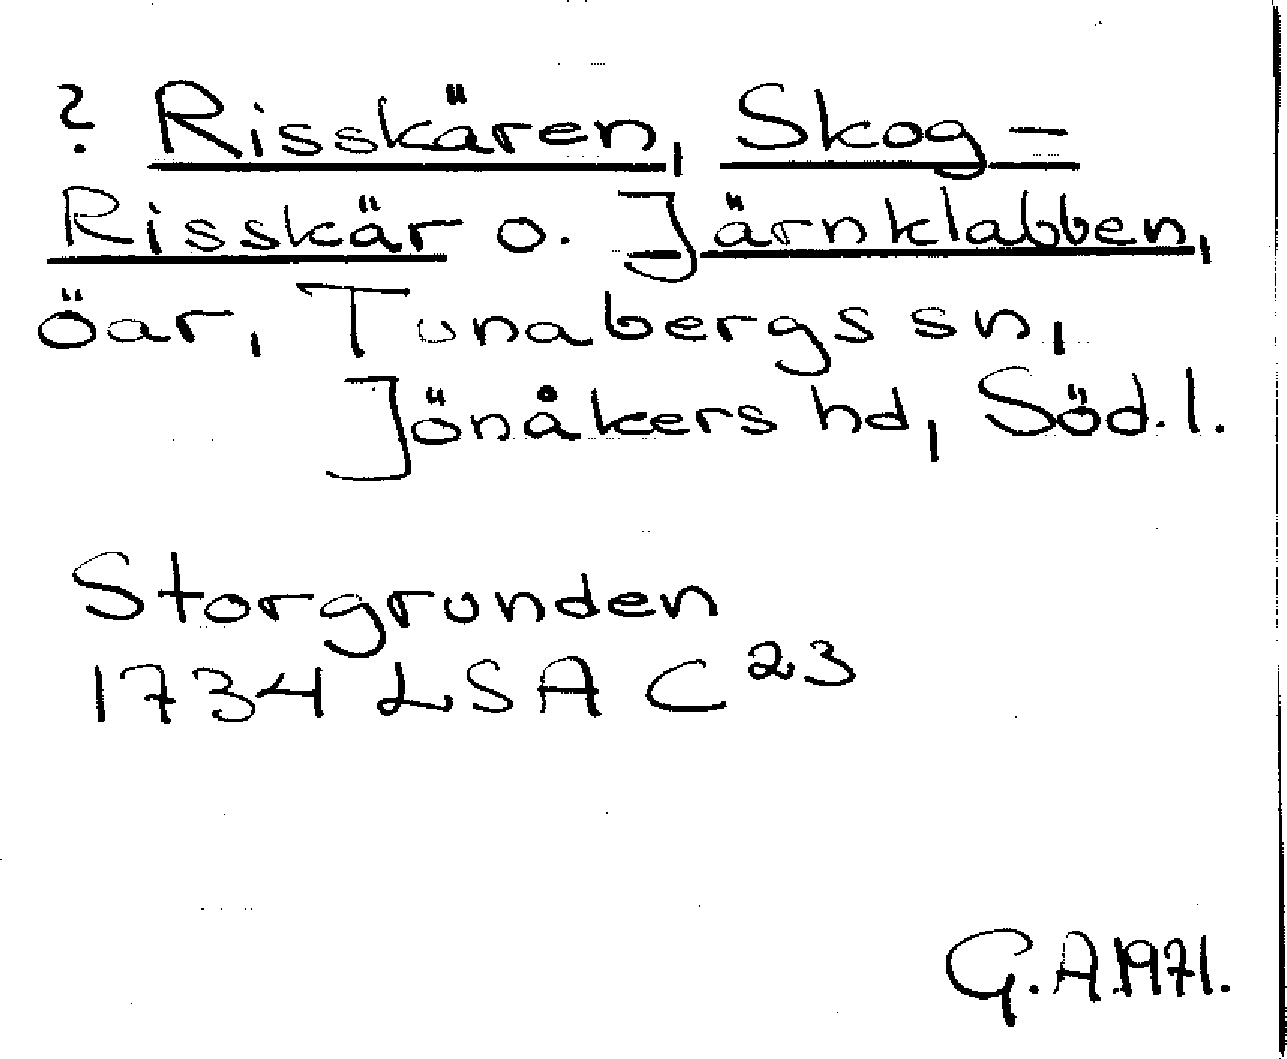 ? Risskären, Skog-
Risskär o. Järnklabben,
öar, Tunabergs sn,
Jönåkers hd, Söd.l.
Storgrunden
1734 LSA C 23
G.A.1971.